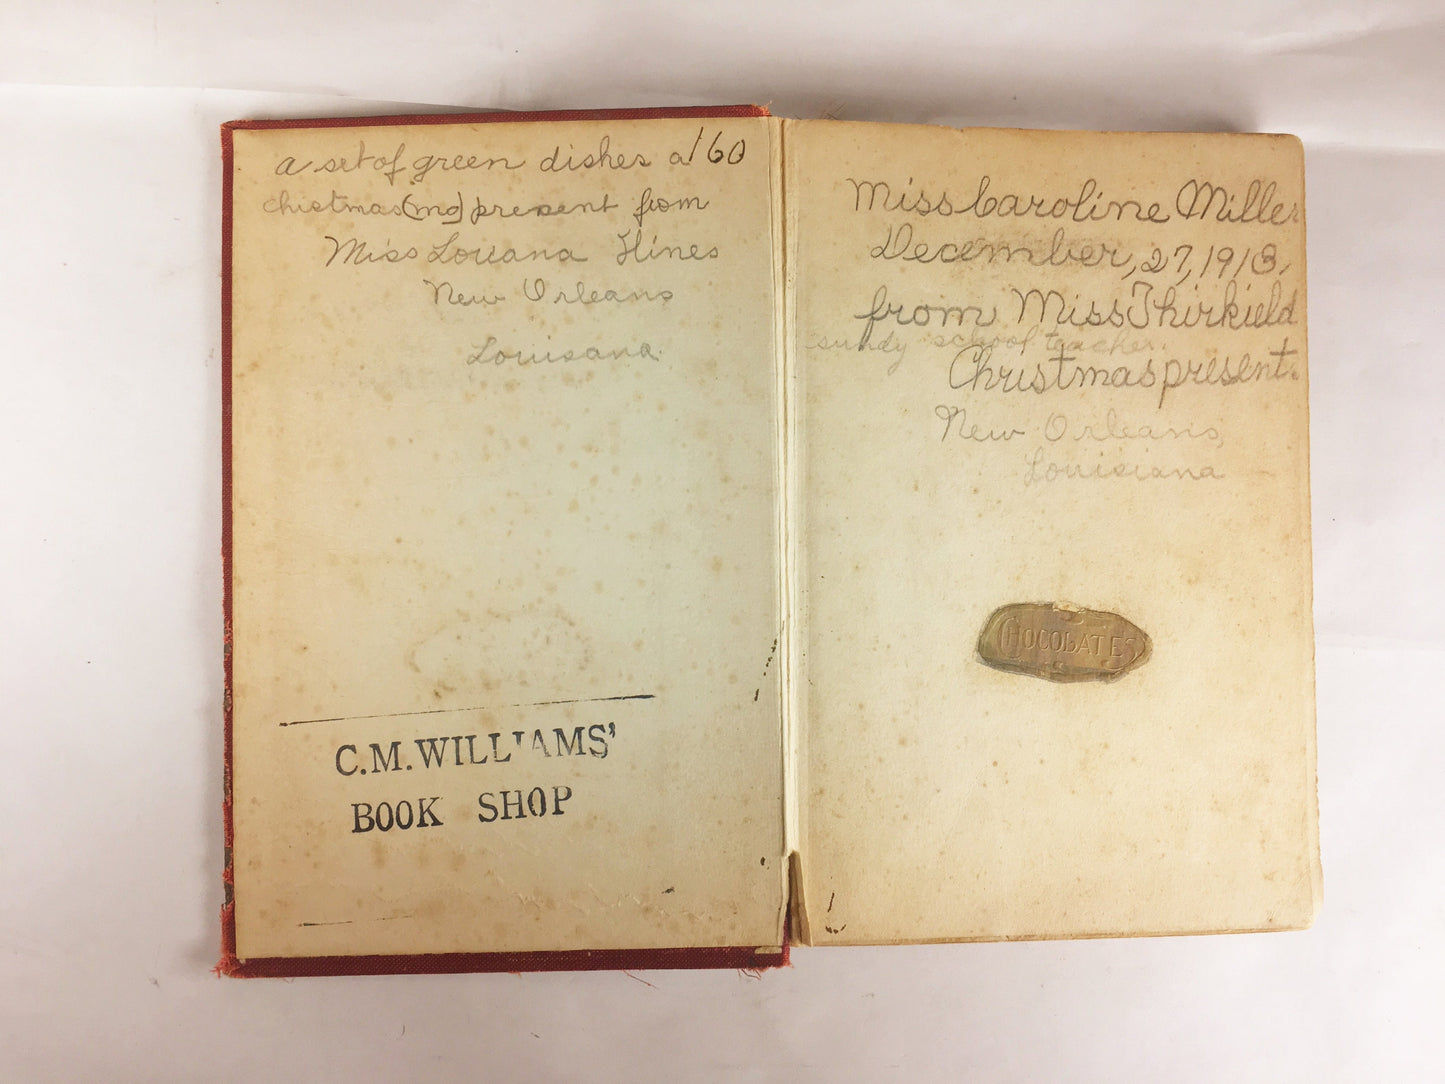 a set of green dishes a 160
christmas (mo) present from
Miss Louana Hines
New Orleans
Louisana.
C.M. WILLIAMS'
BOOK SHOP
Miss Caroline Miller
December, 27, 1913,
from Miss Thirkield
sundy school teacher.
Christmas present.
New Orleans,
Louisiana
CHOCOLATES